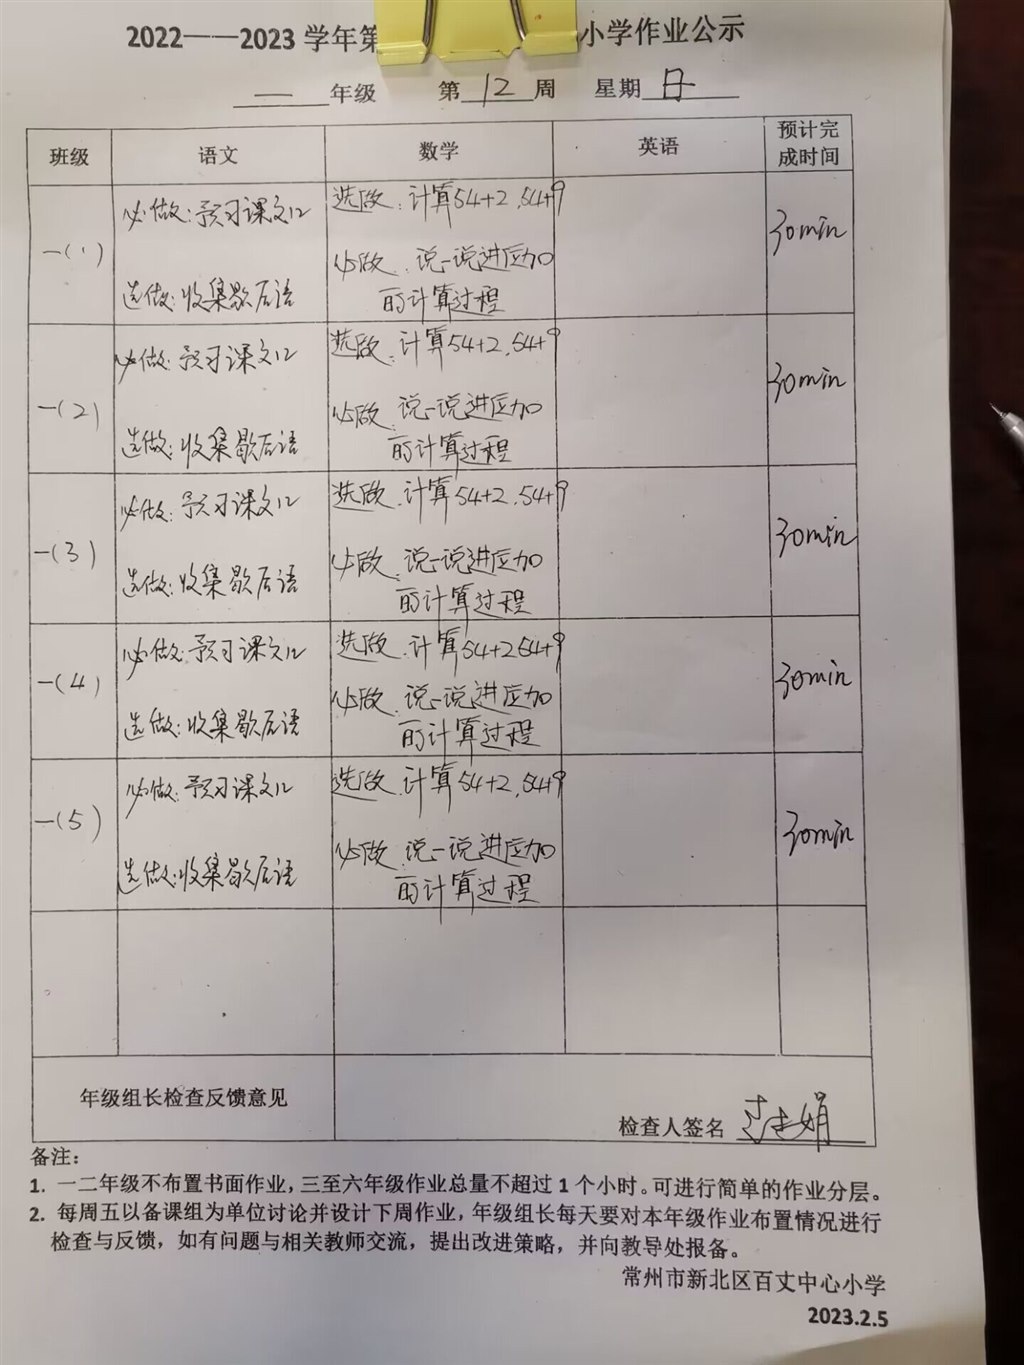 2022——2023 学年第 小学作业公示
一 年级 第 12 周 星期 日
班级 语文 数学 英语 预计完成时间
一(1) 必做:预习课文12 选做:计算54+2,54+9 30min
必做:说一说进位加
选做:收集歇后语 的计算过程
一(2) 必做:预习课文12 选做:计算54+2,54+9 30min
必做:说一说进位加
选做:收集歇后语 的计算过程
一(3) 必做:预习课文12 选做:计算54+2,54+9 30min
必做:说一说进位加
选做:收集歇后语 的计算过程
一(4) 必做:预习课文12 选做:计算54+2 54+9 30min
必做:说一说进位加
选做:收集歇后语 的计算过程
一(5) 必做:预习课文12 选做:计算54+2,54+9 30min
必做:说一说进位加
选做:收集歇后语 的计算过程
年级组长检查反馈意见
检查人签名
备注:
1. 一二年级不布置书面作业,三至六年级作业总量不超过 1 个小时。可进行简单的作业分层。
2. 每周五以备课组为单位讨论并设计下周作业,年级组长每天要对本年级作业布置情况进行
检查与反馈,如有问题与相关教师交流,提出改进策略,并向教导处报备。
常州市新北区百丈中心小学
2023.2.5